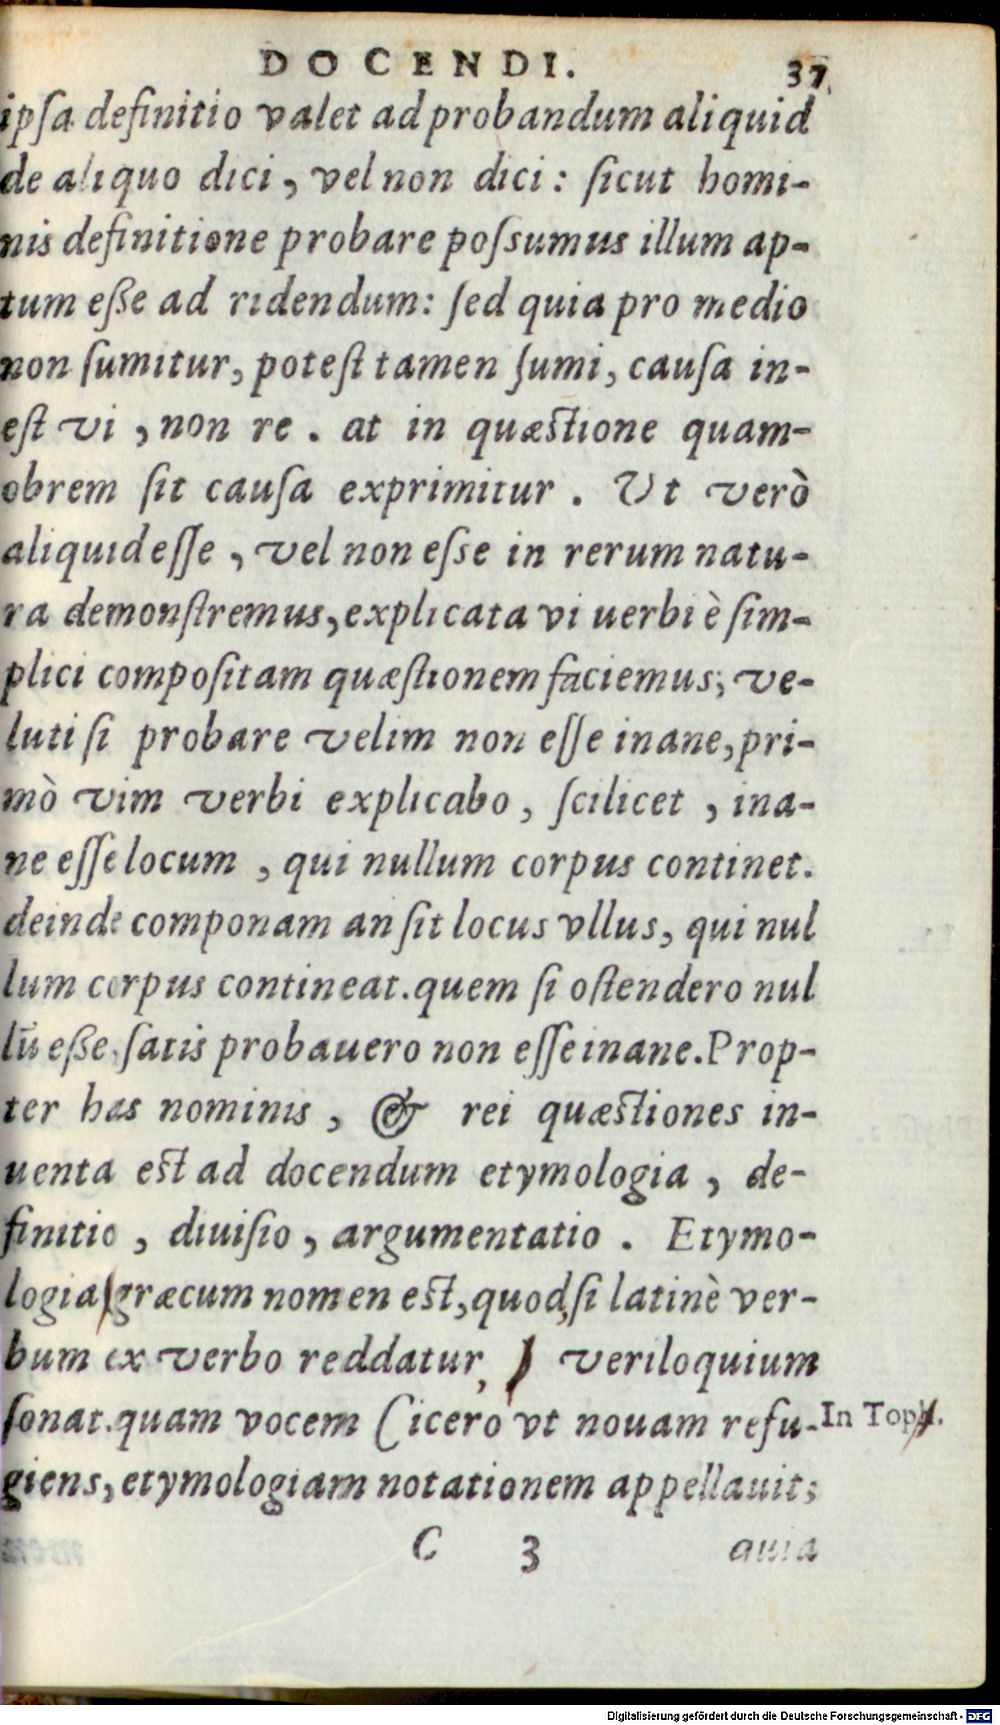 DOCENDI. 37
ipſa definitio valet ad probandum aliquid
de aliquo dici, vel non dici: ſicut homi-
nis definitione probare poſsumus illum ap-
tum eße ad ridendum: ſed quia pro medio
non ſumitur, poteſt tamen ſumi, cauſa in-
eſt vi, non re. at in quæſtione quam-
obrem ſit cauſa exprimitur. Vt verò
aliquid eſſe, vel non eſse in rerum natu-
ra demonſtremus, explicata vi uerbi è ſim-
plici compoſitam quæſtionem faciemus; ve-
luti ſi probare velim non eſſe inane, pri-
mò vim verbi explicabo, ſcilicet, ina-
ne eſſe locum, qui nullum corpus continet.
deinde componam an ſit locus vllus, qui nul
lum corpus contineat. quem ſi oſtendero nul
lũ eße, ſatis probauero non eſſe inane. Prop-
ter has nominis, & rei quæſtiones in-
uenta eſt ad docendum etymologia, de-
finitio, diuiſio, argumentatio. Etymo-
logia græcum nomen eſt, quod, ſi latinè ver-
bum ex verbo reddatur, veriloquium
ſonat. quam vocem Cicero vt nouam refu-
In Top.
giens, etymologiam notationem appellauit;
C 3 quia
Digitalisierung gefördert durch die Deutsche Forschungsgemeinschaft - DFG